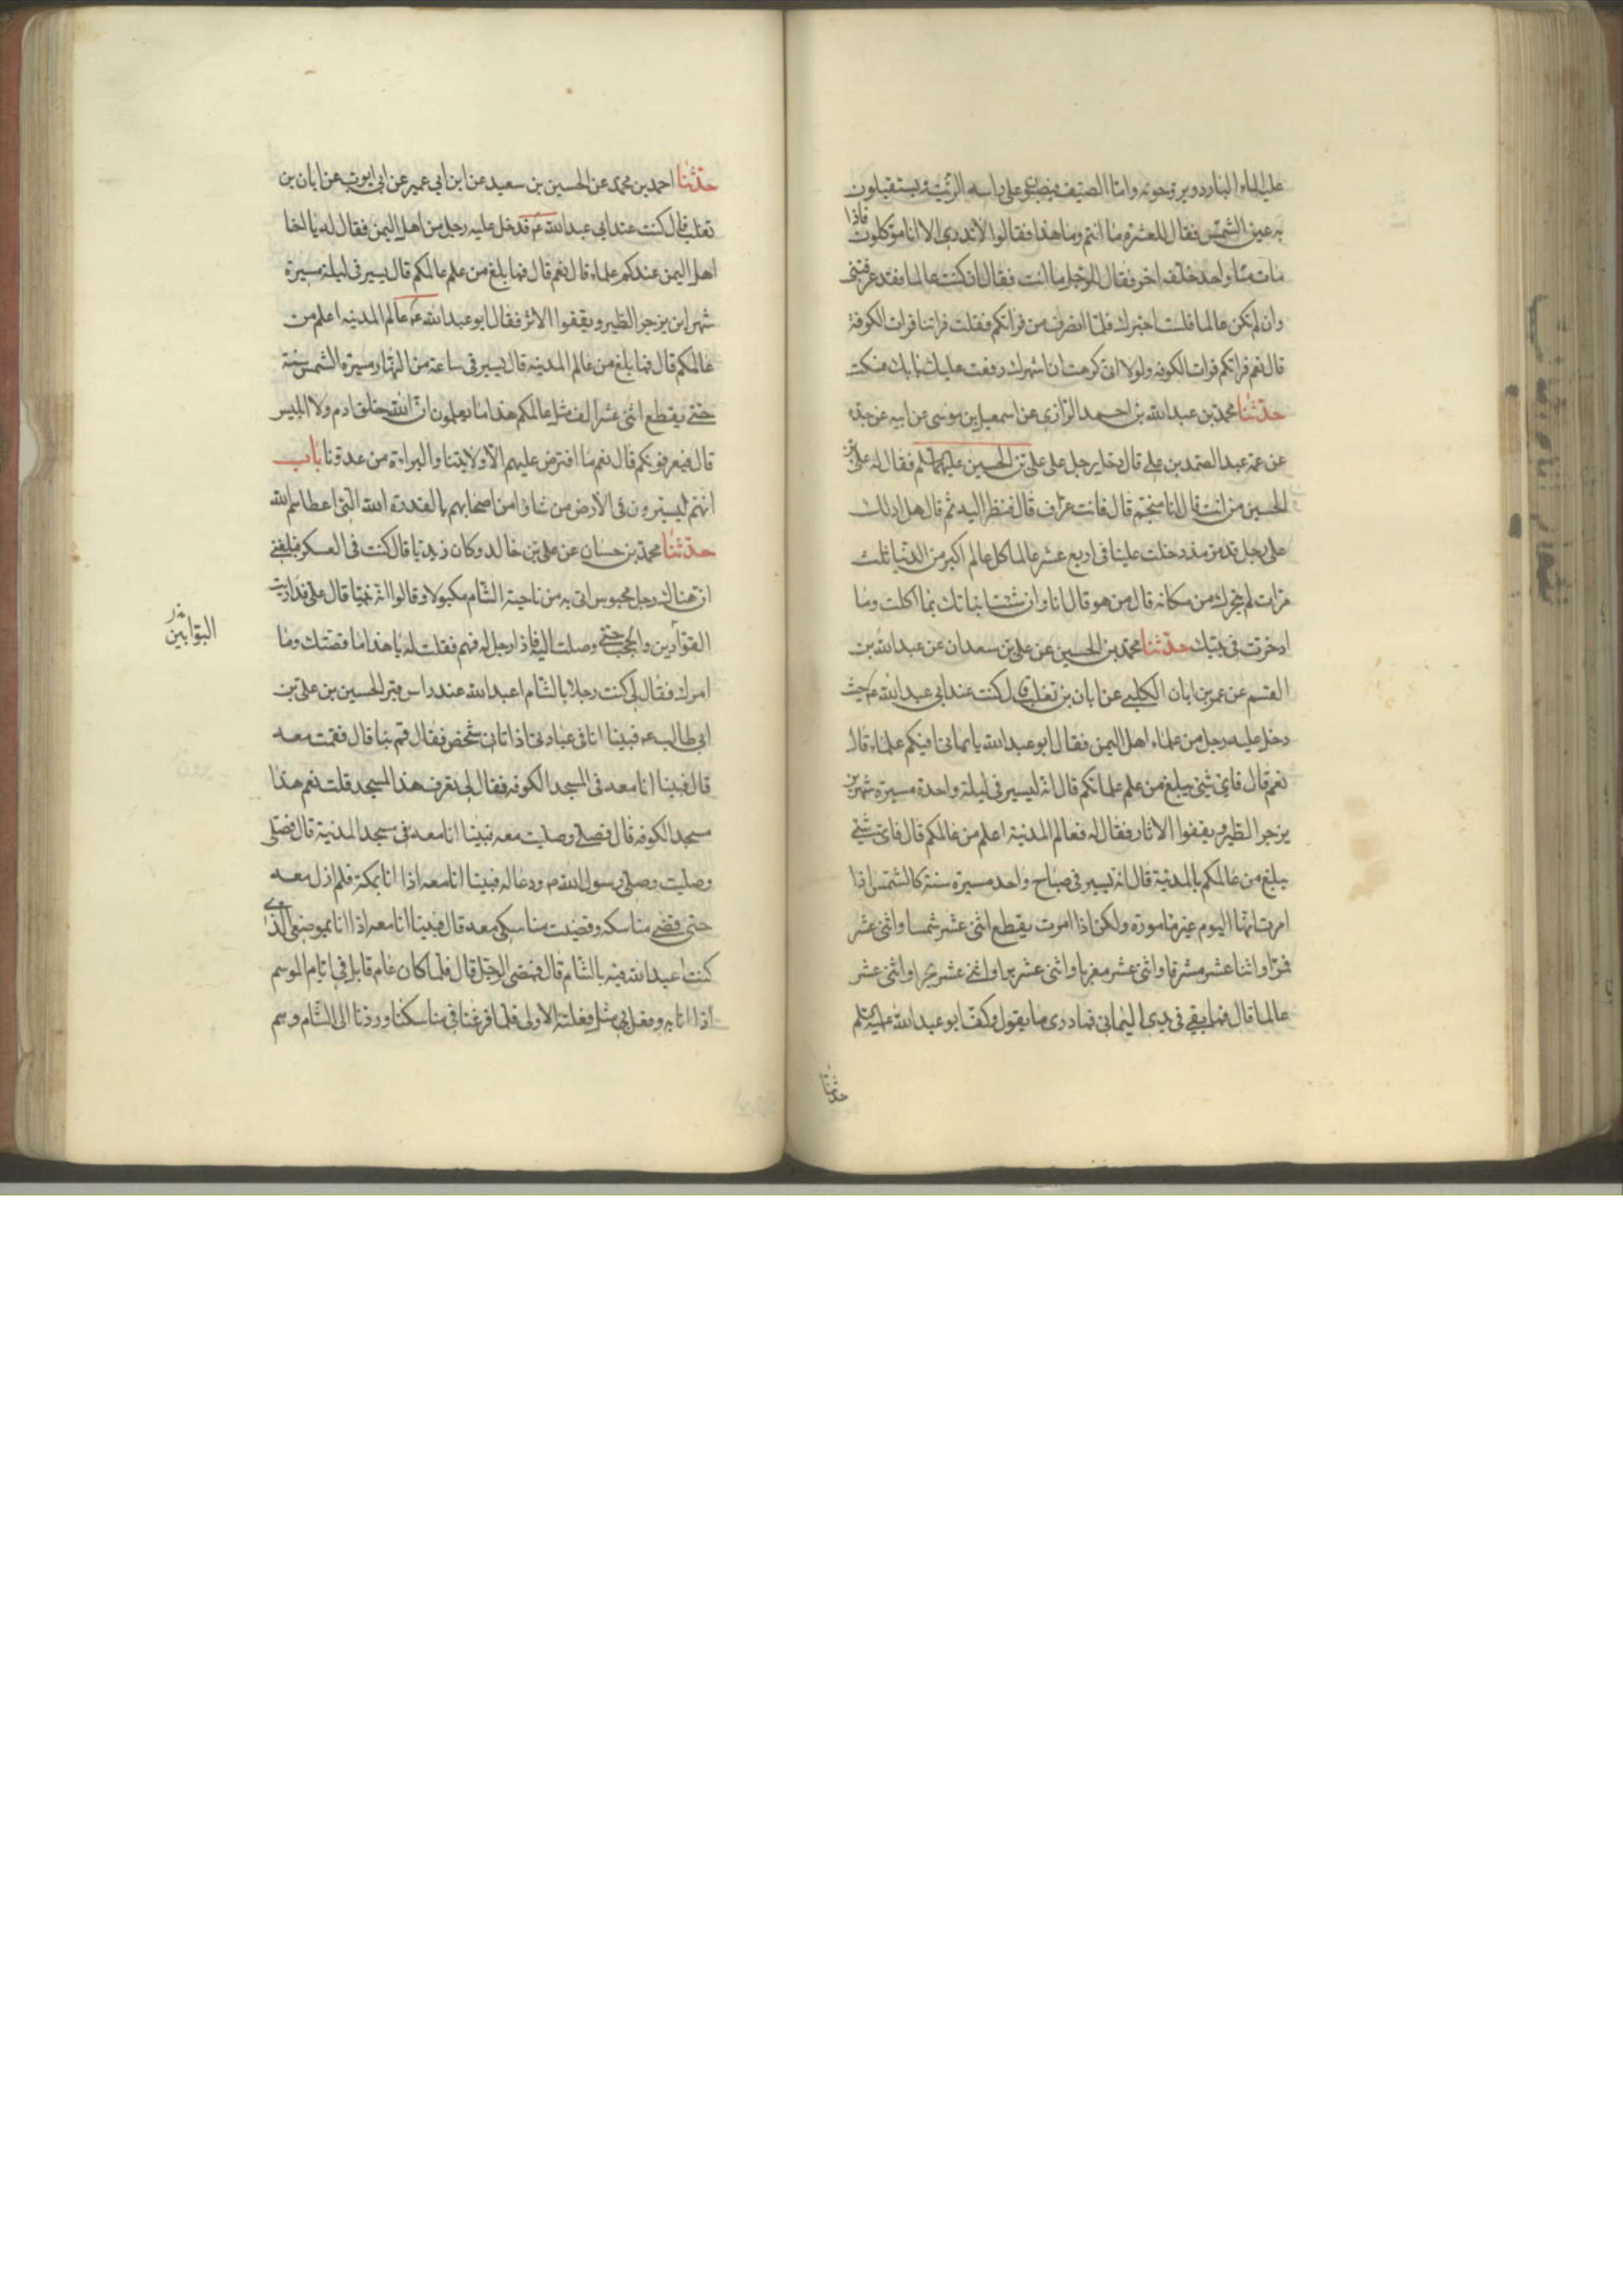 عليه الماء البارد ويروحونه واما الصيف فيصبون على راسه الزيت ويستقبلون
به عين الشمس فقال للعشرة ما انتم وما هذا فقالوا لا ندري الا انا موكلون فاذا
مات منا واحد خلفه اخر فقال للرجل ما انت فقال ان كنت عالما فقد عرفتني
وان لم تكن عالما فلست اخبرك فلما انصرف من فراتكم فقلت فراتنا فرات الكوفة
قال نعم فراتكم فرات الكوفه ولولا انى كرهت ان اشهرك دفعت عليك بابك فسكت
حدثنا محمد بن عبدالله بن احمد الرازي عن اسمعيل بن موسى عن ابيه عن جده
عن عمه عبد الصمد بن على قال دخل رجل على على بن الحسين عليهما السلم فقال له على بن
الحسين من انت قال انا منجم قال فانت عراف قال فنظر اليه ثم قال هل ادلك
على رجل قد مر مذ دخلت علينا فى اربع عشر عالما كل عالم اكبر من الدنيا ثلث
مرات لم يتحرك من مكانه قال من هو قال انا وان شئت انباتك بما اكلت وما
ادخرت فى بيتك حدثنا محمد بن الحسين عن على بن سعدان عن عبدالله بن
القسم عن عمر بن ابان الكلبى عن ابان بن تغلب قال كنت عند ابى عبدالله ع حيث
دخل عليه رجل من علماء اهل اليمن فقال ابو عبدالله يا يمانى افيكم علماء قال
نعم قال فاى شىء يبلغ من علم علمائكم قال انه ليسير فى ليلة واحدة مسيرة شهرين
يزجر الطير ويقفوا الاثار فقال له فعالم المدينة اعلم من عالمكم قال فاى شىء
يبلغ من عالمكم بالمدينة قال انه يسير فى صباح واحد مسيرة سنة كالشمس اذا
امرت انها اليوم غير مامورة ولكن اذا امرت يقطع اثنى عشر شمسا واثنى عشر
قمرا واثنا عشر مشرقا واثنى عشر مغربا واثنى عشر برا واثنى عشر بحرا واثنى عشر
عالما قال فما بقى فى يدى اليمانى فما درى ما يقول وكف ابو عبدالله عليه السلم
حدثنا
حدثنا احمد بن محمد عن الحسين بن سعيد عن ابن ابي عمير عن ابى ايوب عن ابان بن
تغلب قال كنت عند ابى عبدالله ع قد دخل عليه رجل من اهل اليمن فقال له يا اخا
اهل اليمن عندكم علماء قال نعم قال فما بلغ من علم عالمكم قال يسير فى ليلة مسيرة
شهرين يزجر الطير ويقفوا الاثر فقال ابو عبدالله ع عالم المدينه اعلم من
عالمكم قال فما بلغ من عالم المدينه قال يسير فى ساعة من النهار مسيرة الشمس سنة
حتى يقطع اثنى عشر الف مثل عالمكم هذا ما يعلمون ان الله خلق ادم ولا ابليس
قال فيعرفونكم قال نعم ما افترض عليهم الا ولايتنا والبراءة من عدونا باب
انهم ليسيرون فى الارض من شاؤا من اصحابهم بالقدرة الله التى اعطاهم الله
حدثنا محمد بن حسان عن على بن خالد وكان زيديا قال كنت فى العسكر فبلغنى
ان هناك رجل محبوس اتى به من ناحية الشام مكبولا وقالوا انه تنبا قال على فداريت
القوادين والحجب حتى وصلت اليه فاذا رجل له فهم فقلت له يا هذا ما قصتك وما
البوابين
امرك فقال لى كنت رجلا بالشام اعبد الله عند راس قبر الحسين بن على بن
ابى طالب ع فبينا انا فى عبادتى اذ اتانى شخص فقال قم بنا قال فقمت معه
قال فبينا انا معه فى المسجد الكوفه فقال لى تعرف هذا المسجد قلت نعم هذا
مسجد الكوفه قال فصلى وصليت معه فبينا انا معه فى مسجد المدينة قال فصلى
وصليت وصلى رسول الله ص ودعا له فبينا انا معه اذا انا بمكة فلم ازل معه
حتى قضى مناسكه وقضيت مناسكى معه قال فبينا انا معه اذا انا بموضعى الذى
كنت اعبد الله فيه بالشام قال فمضى الرجل قال فلما كان عام قابل فى ايام الموسم
اذا انا به وفعل بى مثل فعلته الاولى فلما فرغنا فى مناسكنا وردنا الى الشام وهم